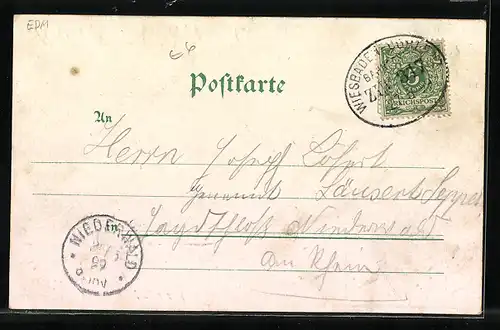 EPM
Postkarte
WIESBADEN
BAHN
ZUG
REICHSPOST
An
Herrn Josef Löhert
genannt Läusert Seppel
in
Jagdschloss Niederwald
am Rhein
NIEDERWALD
99